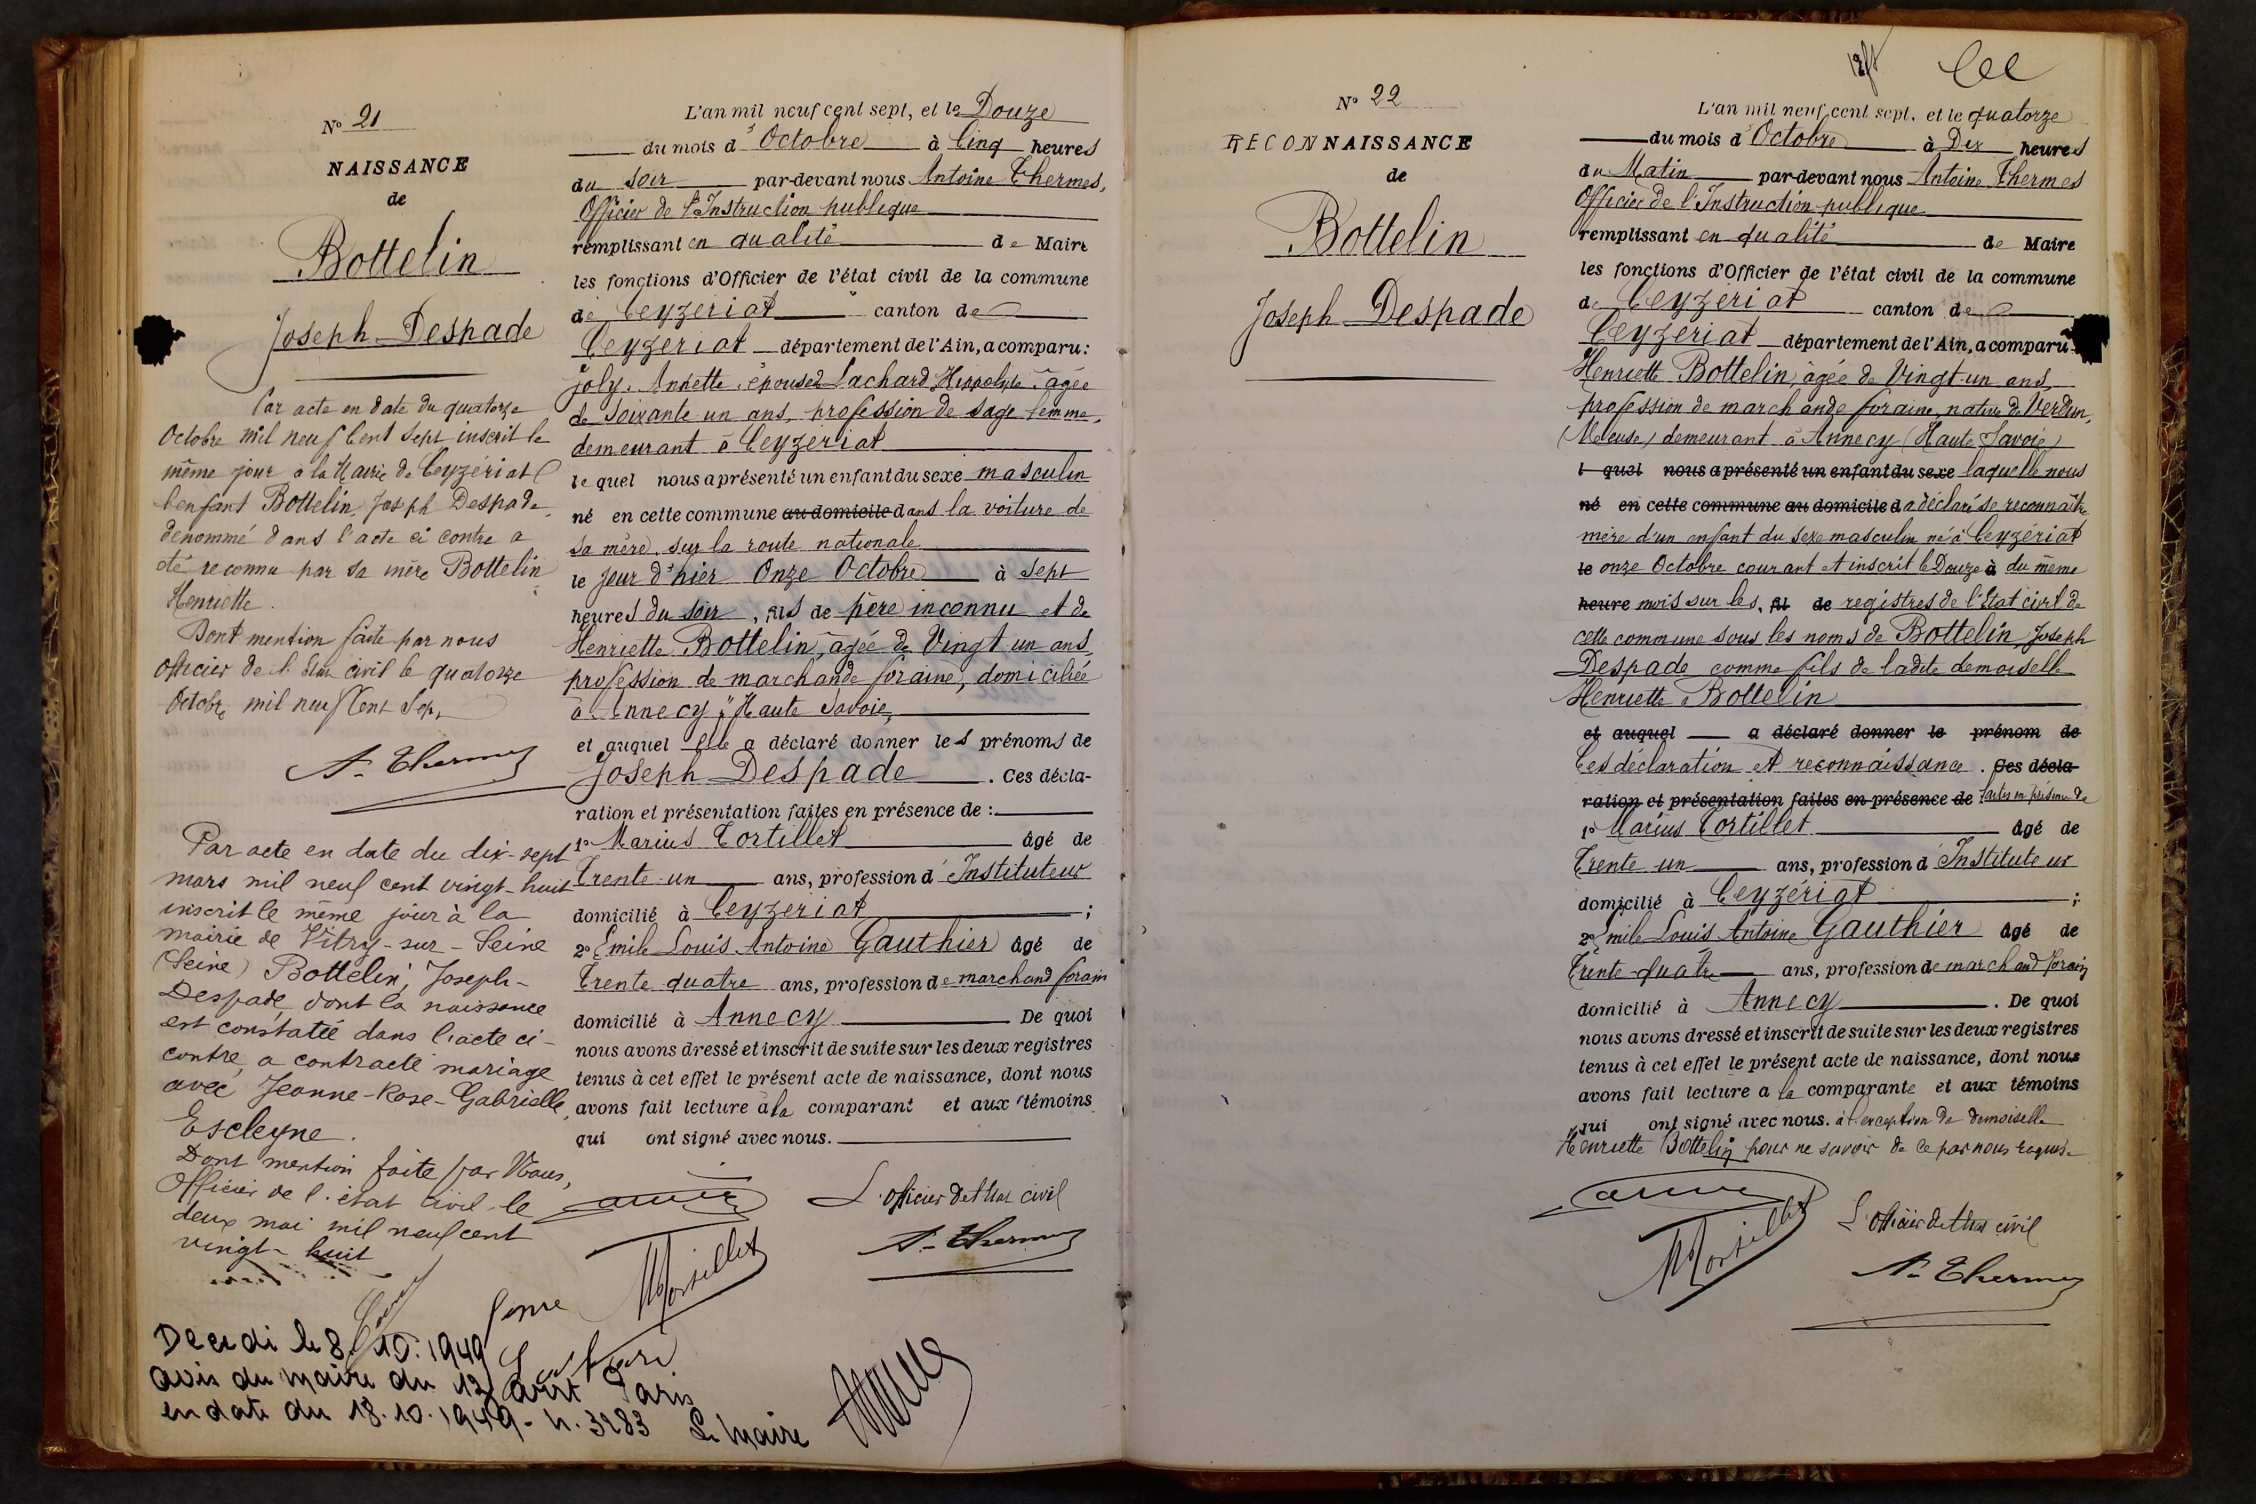 N° 21
NAISSANCE
de
Bottelin
Joseph Despade
Par acte en date du quatorze
Octobre mil neuf Cent sept inscrit le
même jour à la Mairie de Ceyzériat
l'enfant Bottelin Joseph Despade
dénommé dans l'acte ci contre a
été reconnu par sa mère Bottelin
Henriette.
Dont mention faite par nous
officier de l'état civil le quatorze
Octobre mil neuf Cent Sept
A. Thermes
Par acte en date du dix-sept
mars mil neuf cent vingt-huit
inscrit le même jour à la
mairie de Vitry-sur-Seine
(Seine) Bottelin, Joseph-
Despade, dont la naissance
est constatée dans l'acte ci-
contre, a contracté mariage
avec Jeanne-Rose-Gabrielle
Escleyne.
Dont mention faite par Nous,
Officier de l'état civil le
deux mai mil neuf cent
vingt-huit
Décédé le 8.10.1949
avis du maire du 12 arrt Paris
en date du 18.10.1949 - n. 3283 Le Maire
L'an mil neuf cent sept, et le Douze
du mois d'Octobre à Cinq heures
du soir par-devant nous Antoine Thermes,
Officier de l'Instruction publique
remplissant en qualité de Maire
les fonctions d'Officier de l'état civil de la commune
de Ceyzeriat canton de
Ceyzeriat département de l'Ain, a comparu :
Joly, Annette, épouse Lachard Hippolyte, agée
de soixante un ans, profession de sage femme,
demeurant à Ceyzeriat
lequel nous a présenté un enfant du sexe masculin
né en cette commune au domicile dans la voiture de
sa mère, sur la route nationale
le jour d'hier Onze Octobre à sept
heures du soir, fils de père inconnu et de
Henriette Bottelin, agée de Vingt un ans,
profession de marchande foraine, domiciliée
à Annecy, Haute Savoie,
et auquel Elle a déclaré donner les prénoms de
Joseph Despade. Ces décla-
ration et présentation faites en présence de :
1° Marius Tortillet âgé de
Trente-un ans, profession d'Instituteur
domicilié à Ceyzeriat ;
2° Emile Louis Antoine Gauthier âgé de
Trente quatre ans, profession de marchand forain
domicilié à Annecy De quoi
nous avons dressé et inscrit de suite sur les deux registres
tenus à cet effet le présent acte de naissance, dont nous
avons fait lecture à la comparant et aux témoins
qui ont signé avec nous.
L'officier de l'état civil
M Tortillet
A. Thermes
N° 22
RECONNAISSANCE
de
Bottelin
Joseph Despade
L'an mil neuf cent sept, et le quatorze
du mois d'Octobre à Dix heures
du Matin par-devant nous Antoine Thermes
Officier de l'Instruction publique
remplissant en qualité de Maire
les fonctions d'Officier de l'état civil de la commune
de Ceyzériat canton de
Ceyzeriat département de l'Ain, a comparu
Henriette Bottelin, âgée de Vingt-un ans,
profession de marchande foraine, native de Verdun,
(Meeuse) demeurant à Annecy (Haute Savoie)
l quel nous a présenté un enfant du sexe laquelle nous
né en cette commune au domicile d a déclaré se reconnaître
mère d'un enfant du sexe masculin né à Ceyzériat
le onze Octobre courant et inscrit le Douze à du même
heure mois sur les, fil de registres de l'Etat civil de
cette commune sous les noms de Bottelin, Joseph
Despade comme fils de ladite demoiselle
Henriette Bottelin
et auquel a déclaré donner le prénom de
Ces déclaration et reconnaissance. Ces décla-
ration et présentation faites en présence de faites en présence de
1° Marius Tortillet âgé de
Trente-un ans, profession d'Instituteur
domicilié à Ceyzériat ;
2° Emile Louis Antoine Gauthier âgé de
Trente-quatre ans, profession de marchand forain
domicilié à Annecy. De quoi
nous avons dressé et inscrit de suite sur les deux registres
tenus à cet effet le présent acte de naissance, dont nous
avons fait lecture a la comparante et aux témoins
qui ont signé avec nous. à l'exception de demoiselle
Henriette Bottelin pour ne savoir de ce par nous requise
M Tortillet
L'officier de l'état civil
A. Thermes